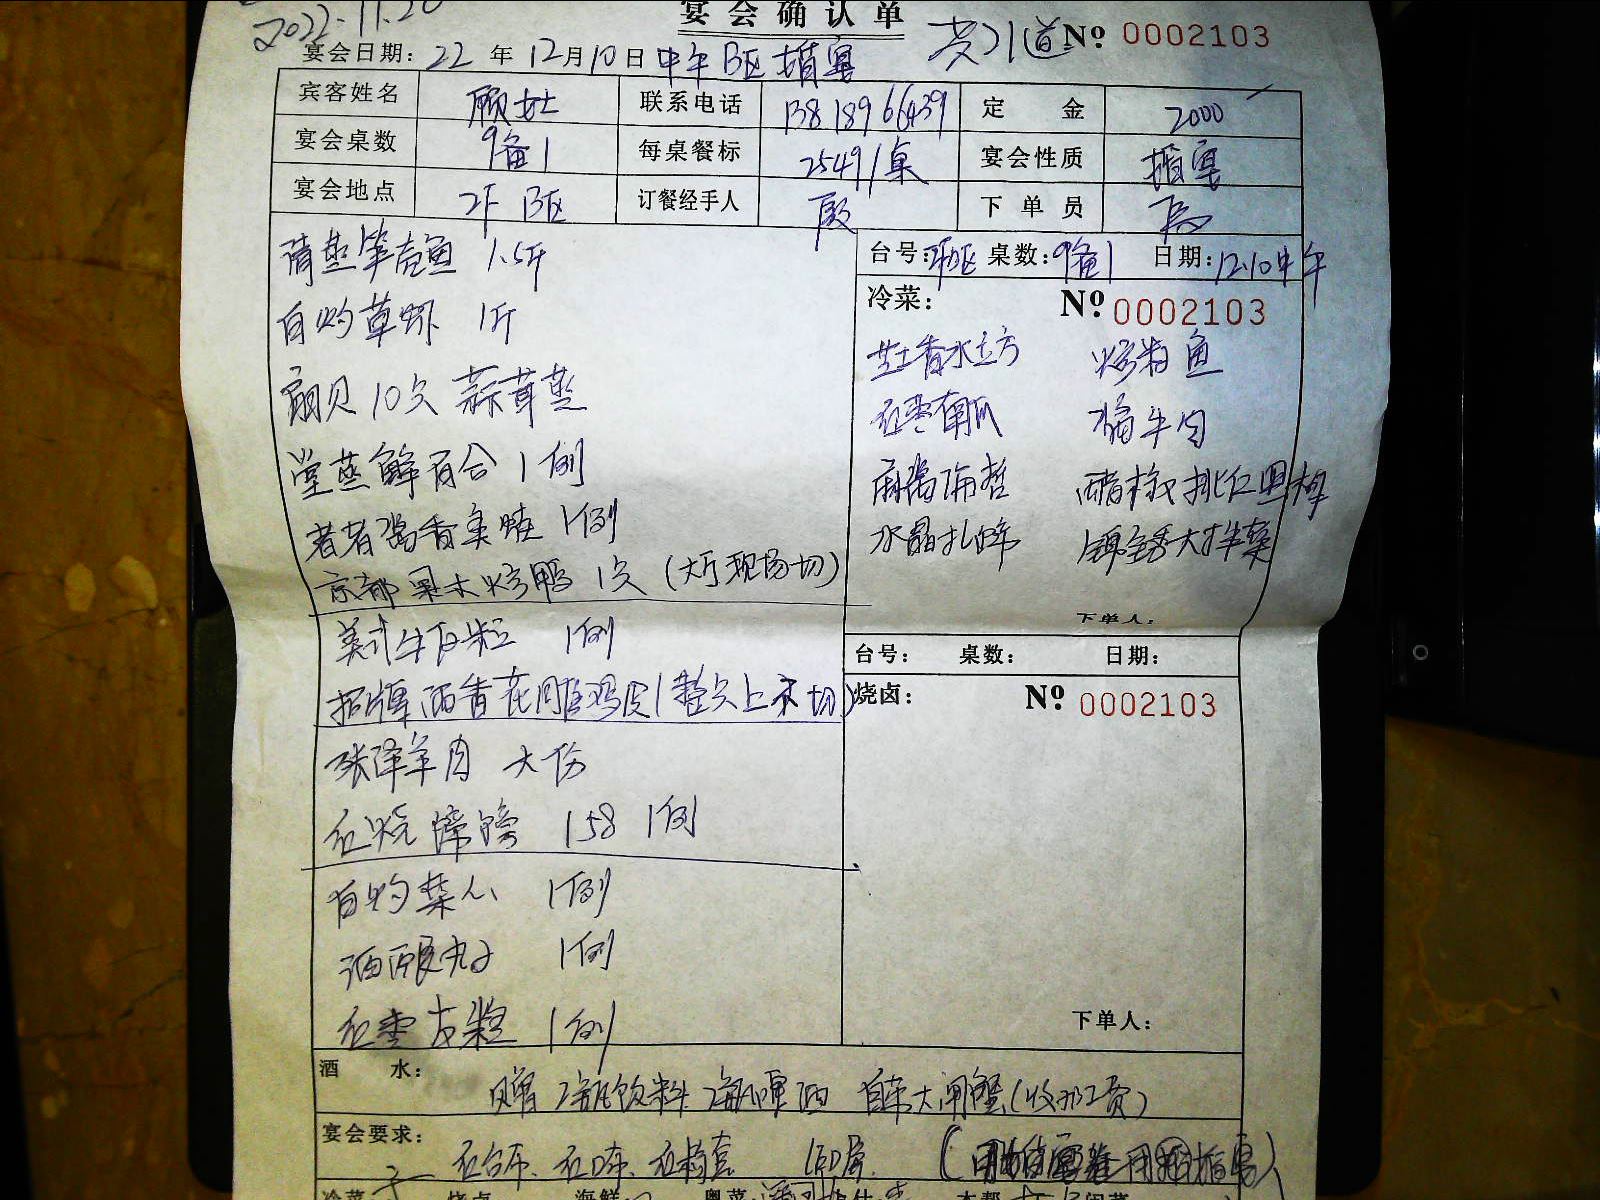 2022.11.20
宴会确认单
№ 0002103
宴会日期: 22 年 12月10日 中午 B区 婚宴
宾客姓名 顾女士 联系电话 13818966439 定 金 2000
宴会桌数 9备1 每桌餐标 2549/桌 宴会性质 婚宴
宴会地点 2F B区 订餐经手人 殷 下 单 员 殷
清蒸笋壳鱼 1.5斤
白灼草虾 1斤
扇贝 10只 蒜茸蒸
堂蒸鲜百合 1例
者者酱香 1例
京都果木烤鸭 1只 (大厅现场切)
美式牛肉粒 1例
招牌 香 鸡 1 整只上不切)
张泽羊肉 大份
红烧蹄髈 158 1例
白灼菜心 1例
酒酿丸子 1例
红枣 1例
台号: 桌数: 9备1 日期: 12.10中午
冷菜:
№ 0002103
水立方 烤籽鱼
红枣南瓜 牛肉
麻酱 桃仁黑木
水晶扎蹄 锦绣大拌菜
下单人:
台号: 桌数: 日期:
烧卤:
№ 0002103
下单人:
酒 水: 赠 2瓶饮料 2瓶啤酒 自带大闸蟹(收加工费)
宴会要求: 红台布、红口布、红椅套 LED屏
冷菜 烧卤 海鲜 粤菜 本帮 闲菜